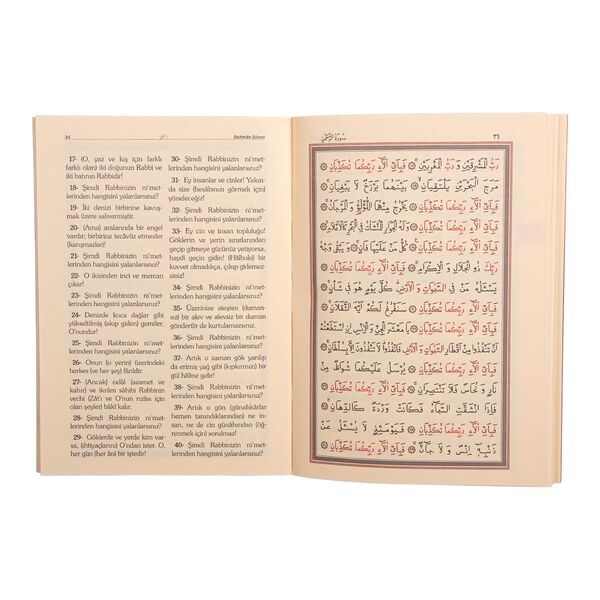 34
Rahmân Sûresi
17- (O, yaz ve kış için farklı
farklı olan) iki doğunun Rabbi ve
iki batının Rabbidir!
18- Şimdi Rabbinizin ni'met-
lerinden hangisini yalanlarsınız?
19- İki denizi birbirine kavuş-
mak üzere salıvermiştir.
20- (Ama) aralarında bir engel
vardır; birbirine tecâvüz etmezler
(karışmazlar)!
21- Şimdi Rabbinizin ni'met-
lerinden hangisini yalanlarsınız?
22- O ikisinden inci ve mercan
çıkar!
23- Şimdi Rabbinizin ni'met-
lerinden hangisini yalanlarsınız?
24- Denizde koca dağlar gibi
yükseltilmiş (akıp giden) gemiler,
O'nundur!
25- Şimdi Rabbinizin ni'met-
lerinden hangisini yalanlarsınız?
26- Onun (o yerin) üzerindeki
herkes (ve her şey) fânîdir.
27- (Ancak) celâl (azamet ve
kahır) ve ikrâm sâhibi Rabbinin
vechi (Zât'ı ve O'nun rızâsı için
olan şeyler) bâkî kalır.
28- Şimdi Rabbinizin ni'met-
lerinden hangisini yalanlarsınız?
29- Göklerde ve yerde kim var-
sa, (ihtiyaçlarını) O'ndan ister. O,
her gün (her ân) bir iştedir!
30- Şimdi Rabbinizin ni'met-
lerinden hangisini yalanlarsınız?
31- Ey insanlar ve cinler! Yakın-
da size (hesâbınızı görmek için)
yöneleceğiz!
32- Şimdi Rabbinizin ni'met-
lerinden hangisini yalanlarsınız?
33- Ey cin ve insan topluluğu!
Göklerin ve yerin sınırlarından
geçip gitmeye gücünüz yetiyorsa,
haydi geçin gidin! (Hâlbuki) bir
kuvvet olmadıkça, çıkıp gidemez-
siniz!
34- Şimdi Rabbinizin ni'met-
lerinden hangisini yalanlarsınız?
35- Üzerinize ateşten (duman-
sız) bir alev ve alevsiz bir duman
gönderilir de kurtulamazsınız.
36- Şimdi Rabbinizin ni'met-
lerinden hangisini yalanlarsınız?
37- Artık o zaman gök yarılıp
da erimiş yağ gibi (kıpkırmızı) bir
gül hâline gelir!
38- Şimdi Rabbinizin ni'met-
lerinden hangisini yalanlarsınız?
39- Artık o gün (günahkârlar
hemen tanındıklarından) ne in-
san, ne de cin günâhından (öğ-
renmek için) sorulmaz!
40- Şimdi Rabbinizin ni'met-
lerinden hangisini yalanlarsınız?
سُورَةُ الرَّحْمٰنِ
٣٤
رَبُّ الْمَشْرِقَيْنِ وَ رَبُّ الْمَغْرِبَيْنِ فَبِاَيِّ اٰلَٓاءِ رَبِّكُمَا تُكَذِّبَانِ
مَرَجَ الْبَحْرَيْنِ يَلْتَقِيَانِ بَيْنَهُمَا بَرْزَخٌ لَا يَبْغِيَانِ
فَبِاَيِّ اٰلَٓاءِ رَبِّكُمَا تُكَذِّبَانِ يَخْرُجُ مِنْهُمَا اللُّؤْلُؤُ وَ الْمَرْجَانُ
فَبِاَيِّ اٰلَٓاءِ رَبِّكُمَا تُكَذِّبَانِ وَلَهُ الْجَوَارِ الْمُنْشَاٰتُ فِي الْبَحْرِ كَالْاَعْلَامِ
فَبِاَيِّ اٰلَٓاءِ رَبِّكُمَا تُكَذِّبَانِ كُلُّ مَنْ عَلَيْهَا فَانٍ وَ يَبْقٰى وَجْهُ
رَبِّكَ ذُو الْجَلَالِ وَ الْاِكْرَامِ فَبِاَيِّ اٰلَٓاءِ رَبِّكُمَا تُكَذِّبَانِ
يَسْـَٔلُهُ مَنْ فِي السَّمٰوَاتِ وَ الْاَرْضِ كُلَّ يَوْمٍ هُوَ فِي شَاْنٍ
فَبِاَيِّ اٰلَٓاءِ رَبِّكُمَا تُكَذِّبَانِ سَنَفْرُغُ لَكُمْ اَيُّهَ الثَّقَلَانِ
فَبِاَيِّ اٰلَٓاءِ رَبِّكُمَا تُكَذِّبَانِ يَا مَعْشَرَ الْجِنِّ وَ الْاِنْسِ اِنِ اسْتَطَعْتُمْ
اَنْ تَنْفُذُوا مِنْ اَقْطَارِ السَّمٰوَاتِ وَ الْاَرْضِ فَانْفُذُوا لَا تَنْفُذُونَ اِلَّا بِسُلْطَانٍ
فَبِاَيِّ اٰلَٓاءِ رَبِّكُمَا تُكَذِّبَانِ يُرْسَلُ عَلَيْكُمَا شُوَاظٌ مِنْ
نَارٍ وَ نُحَاسٌ فَلَا تَنْتَصِرَانِ فَبِاَيِّ اٰلَٓاءِ رَبِّكُمَا تُكَذِّبَانِ
فَاِذَا انْشَقَّتِ السَّمَٓاءُ فَكَانَتْ وَرْدَةً كَالدِّهَانِ
فَبِاَيِّ اٰلَٓاءِ رَبِّكُمَا تُكَذِّبَانِ فَيَوْمَئِذٍ لَا يُسْـَٔلُ عَنْ
ذَنْبِهِ اِنْسٌ وَ لَا جَٓانٌّ فَبِاَيِّ اٰلَٓاءِ رَبِّكُمَا تُكَذِّبَانِ